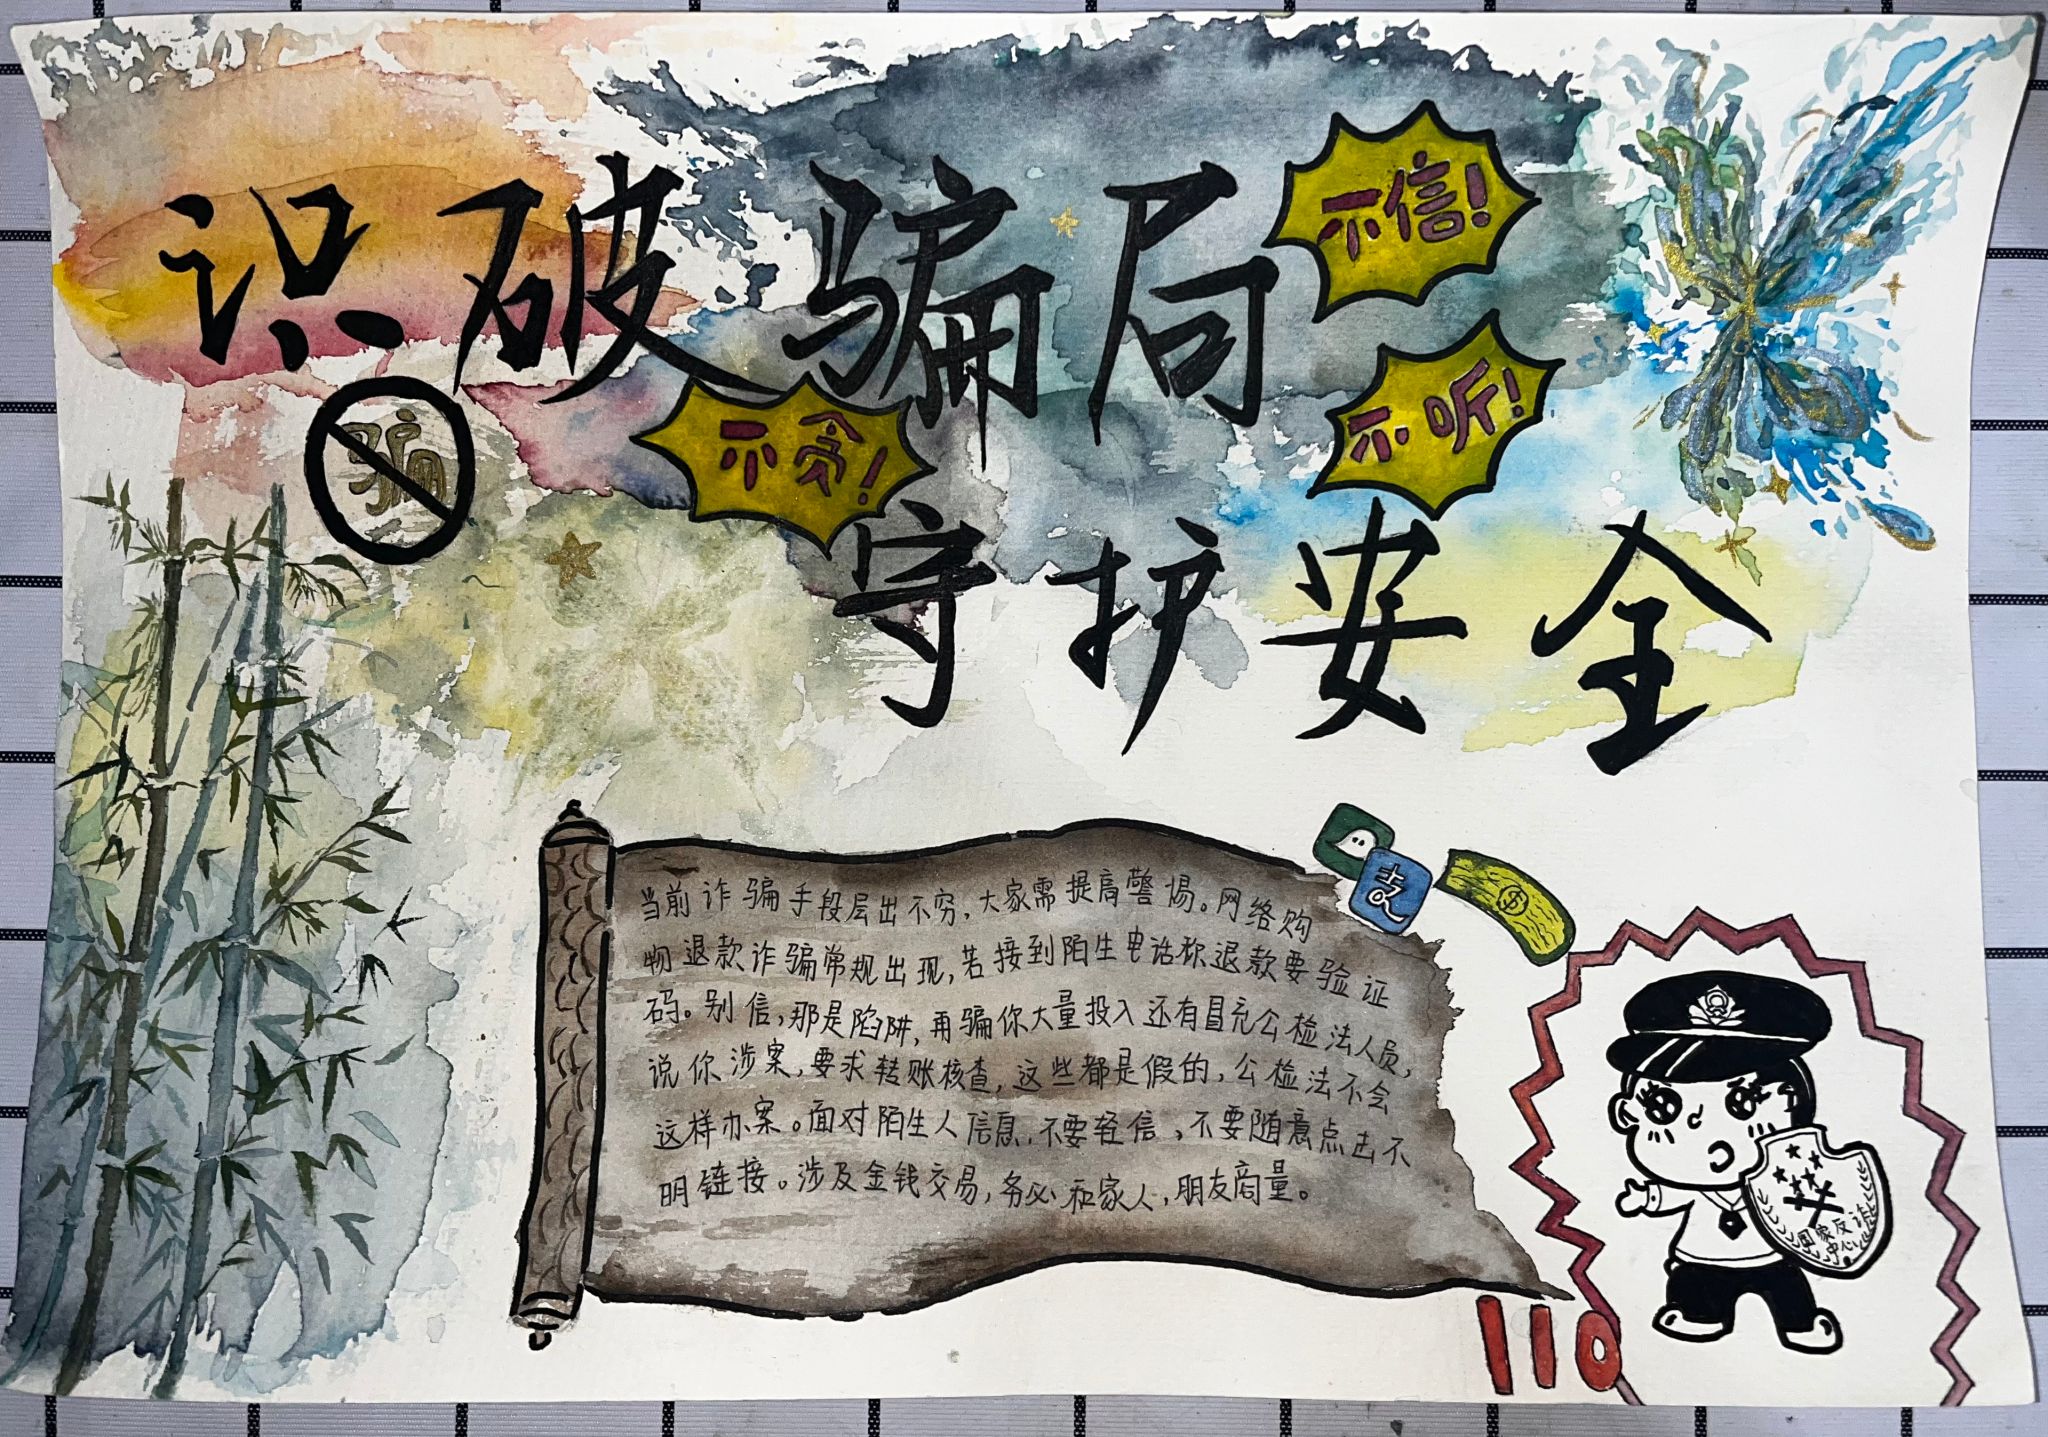 识破骗局
不信!
不听!
不贪!
骗
守护安全
支
$
当前诈骗手段层出不穷，大家需提高警惕。网络购
物退款诈骗常规出现，若接到陌生电话称退款要验证
码。别信，那是陷阱，再骗你大量投入还有冒充公检法人员，
说你涉案，要求转账核查，这些都是假的，公检法不会
这样办案。面对陌生人信息，不要轻信，不要随意点击不
明链接。涉及金钱交易，务必和家人，朋友商量。
国家反诈
中心
110